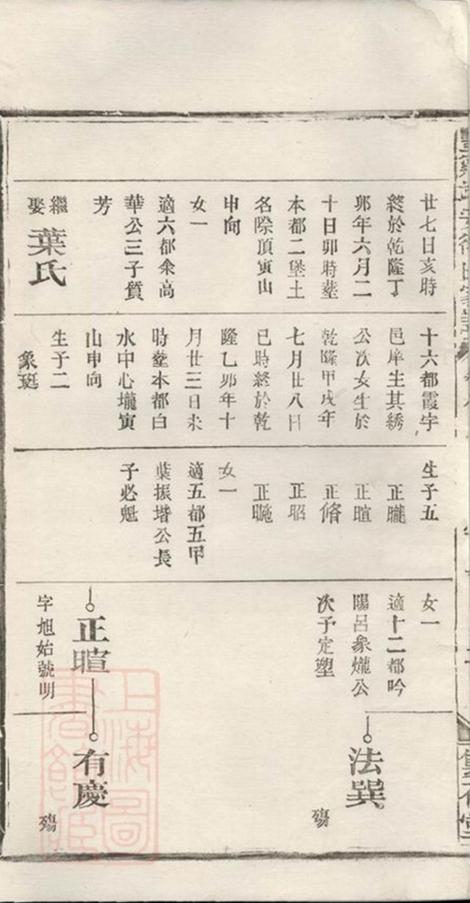 廿七日亥時
終於乾隆丁
卯年六月二
十日卯時塟
本都二堡土
名際頂寅山
申向
女一
適六都余高
華公三子質
芳
繼娶葉氏
十六都霞宇
邑庠生其綉
公次女生於
乾隆甲戌年
七月廿八日
巳時終於乾
隆乙卯年十
月廿三日未
時塟本都白
水中心壠寅
山申向
生子二
象珽
生子五
正曨
正暄
正脩
正昭
正曮
女一
適五都五甲
葉振堦公長
子必魁
女一
適十二都吟
陽呂象爖公
次子定塱
法巽
殤
正暄
字旭始號明
有慶
殤
上海圖書館藏